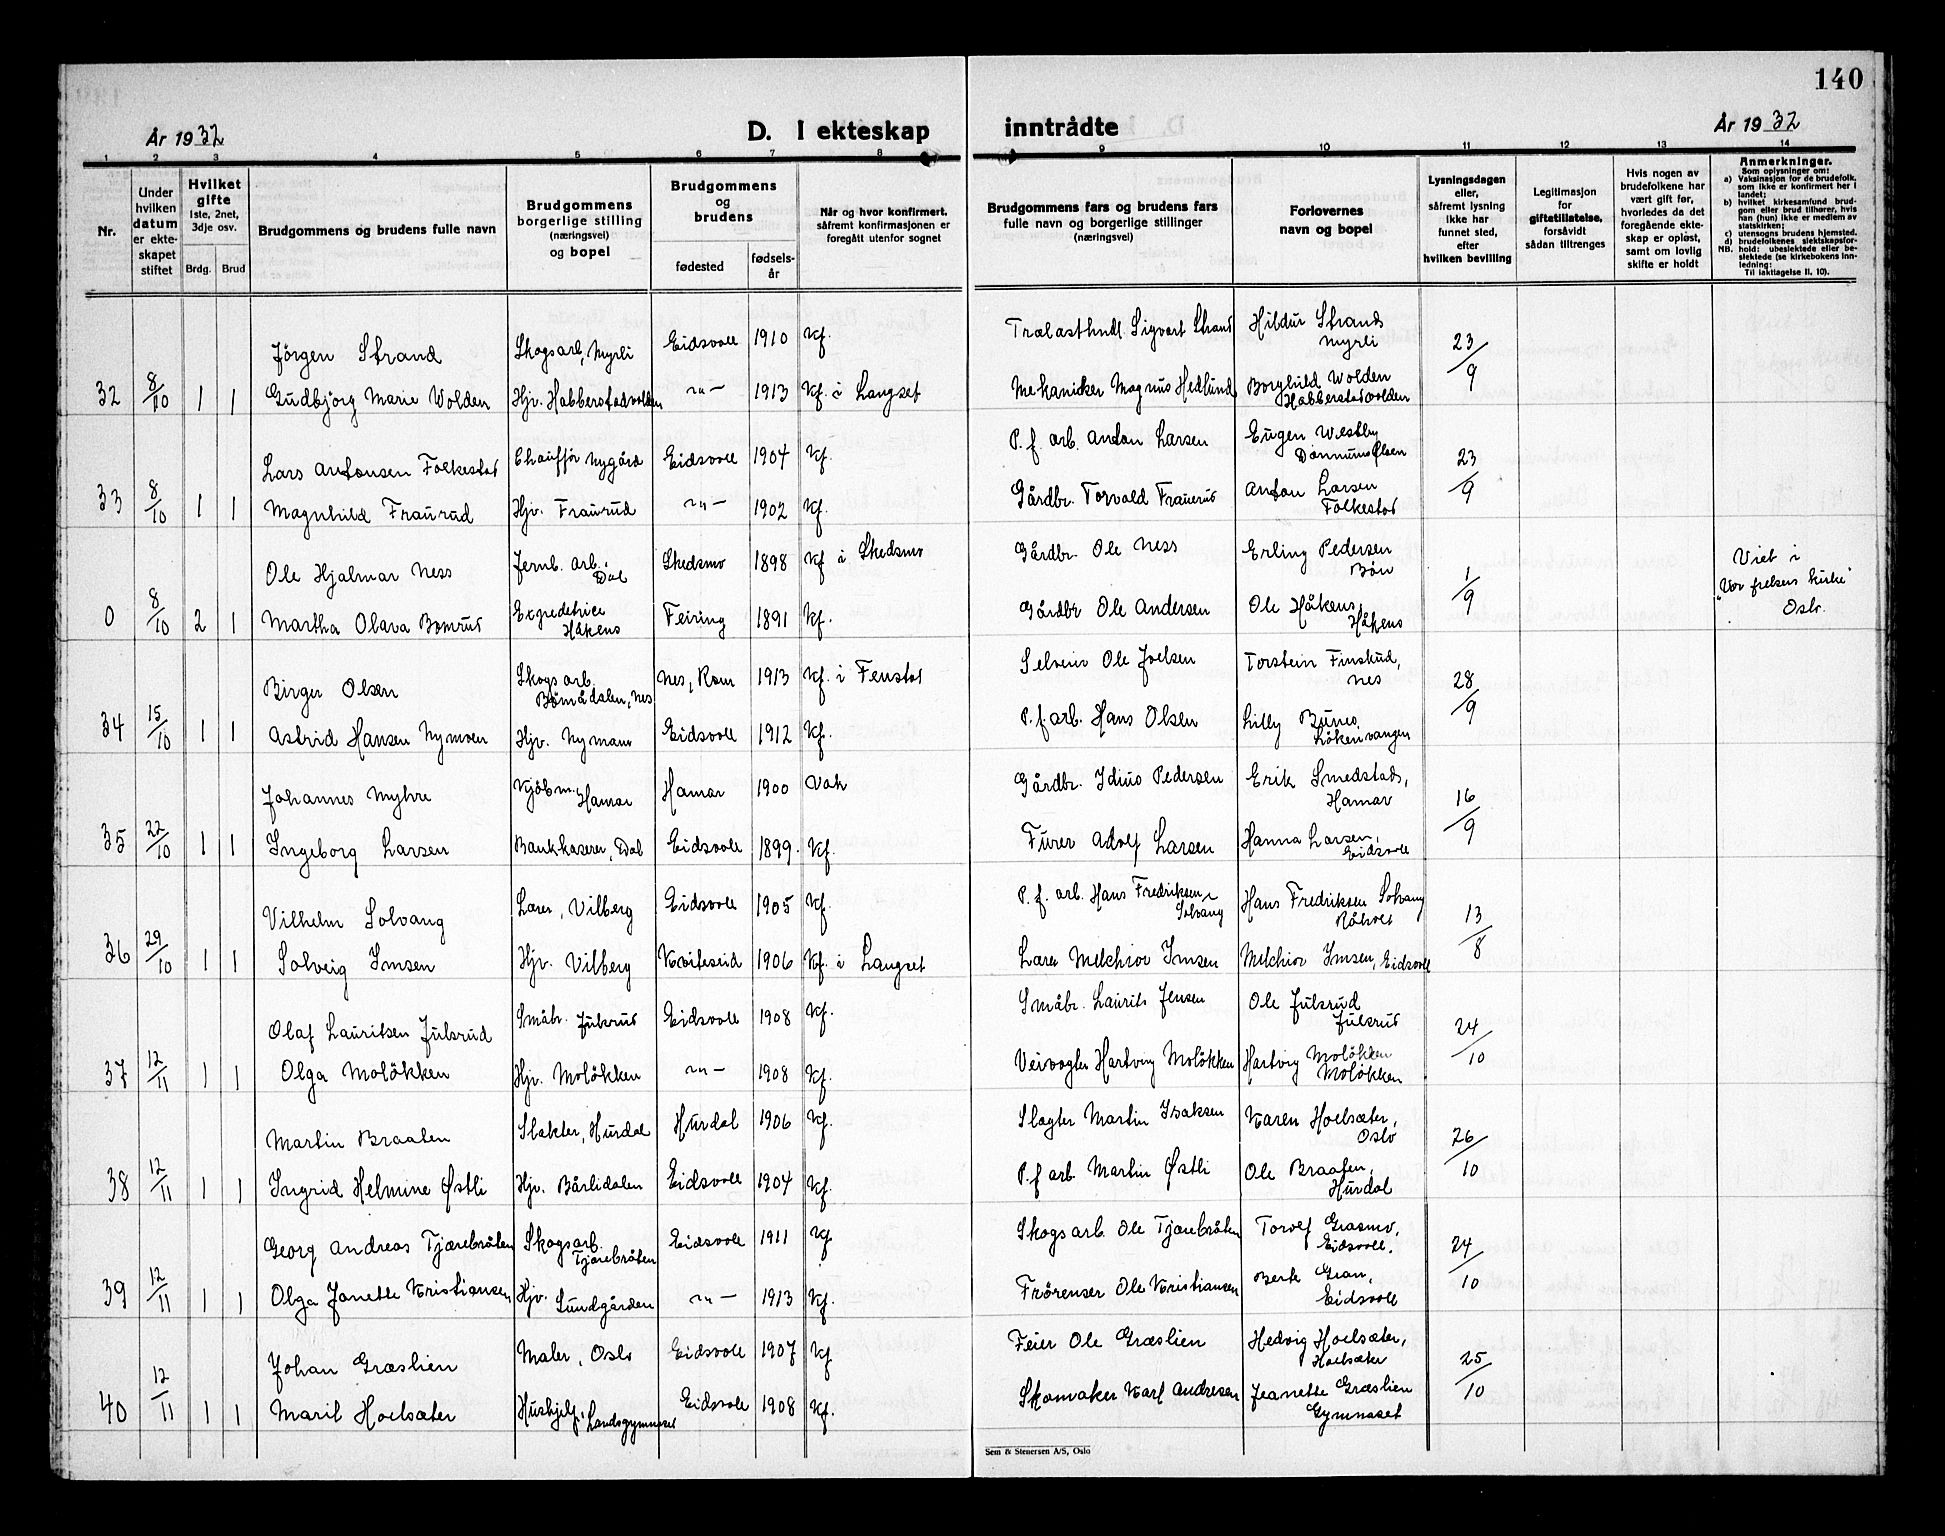 140
År 1932
D. I ekteskap
inntrådte
År 1932
1 2 3 4 5 6 7 8 9 10 11 12 13 14
Nr.
Under
hvilken
datum
er ekte-
skapet
stiftet
Hvilket
gifte
1ste, 2net,
3dje osv.
Brdg. Brud
Brudgommens og brudens fulle navn
Brudgommens
borgerlige stilling
(næringsvei)
og bopel
Brudgommens
og
brudens
fødested
fødsels-
år
Når og hvor konfirmert,
såfremt konfirmasjonen er
foregått utenfor sognet
Brudgommens fars og brudens fars
fulle navn og borgerlige stillinger
(næringsvei)
Forlovernes
navn og bopel
Lysningsdagen
eller,
såfremt lysning
ikke har
funnet sted,
efter
hvilken bevilling
Legitimasjon
for
giftetillatelse,
forsåvidt
sådan tiltrenges
Hvis nogen av
brudefolkene har
vært gift før,
hvorledes da det
foregående ekte-
skap er opløst,
samt om lovlig
skifte er holdt
Anmerkninger.
Som oplysninger om:
a) Vaksinasjon for de brudefolk,
som ikke er konfirmert her i
landet;
b) hvilket kirkesamfund brud-
gom eller brud tilhører, hvis
han (hun) ikke er medlem av
statskirken;
c) utensogns brudens hjemsted.
d) brudefolkenes slektskapsfor-
NB. hold: ubeslektede eller be-
slektede (se kirkebokens Inn-
ledning:
Til iakttagelse II, 10).
Jørgen Strand Skogsarb, Myrli Eidsvoll 1910 Kf. Trælasthndl. Sigvart Strand Hildur Strand
Myrli
32 8/10 1 1 Gudbjørg Marie Wolden Hjv. Habberstadvolden -"- 1913 Kf. i Langset Mekaniker Magnus Hedlund Borghild Wolden
Habberstadvolden 23/9
Lars Antonsen Folkestad Chauffør Nygård Eidsvoll 1904 Kf. P. f. arb. Anton Larsen Eugen Westby
33 8/10 1 1 Magnhild Fraurud Hjv. Fraurud -"- 1902 Kf. Gårdbr. Torvald Fraurud Anton Larsen
Folkestad 23/9
Ole Hjalmar Ness Jernb. arb.
Dal Skedsmo 1898 Kf i Skedsmo Gårdbr. Ole Ness Erling Pedersen
Bøn
0 8/10 2 1 Martha Olava Bomrud Expeditrice
Håkens Feiring 1891 Kf. Gårdbr Ole Andersen Ole Håkens,
Håkens 1/9
Viet i
"Vor frelsers kirke"
Oslo.
Birger Olsen Skogsarb.
Bømådalen, Nes Nes, Rom 1913 Kf. i Fenstad Selveier Ole Joelsen Torstein Finskud,
Nes
34 15/10 1 1 Astrid Hansen Nymoen Hjv. Nymoen Eidsvoll 1912 Kf. P. f. arb. Hans Olsen Lilly Bunes
Løkenvangen 28/9
Johannes Myhre Kjøbm. Hamar Hamar 1900 Vak Gårdbr. Idius Pedersen Erik Smedstad,
Hamar
35 22/10 1 1 Ingeborg Larsen Bankkaserer, Dal Eidsvoll 1899. Kf. Furer Adolf Larsen Hanna Larsen,
Eidsvoll 16/9
Vilhelm Solvang Lærer, Vilberg Eidsvoll 1905 Kf. P. f. arb. Hans Fredriksen
Solvang Hans Fredriksen Solvang
Råholt
36 29/10 1 1 Solveig Imsen Hjv. Vilberg Kviteseid 1906 Kf. i Langset Lærer Melchior Imsen Melchior Imsen, Eidsvoll 13/8
Olaf Lauritsen Julsrud Småbr. Julsrud Eidsvoll 1908 Kf. Småbr. Laurits Jensen Ole Julsrud
Julsrud
37 12/11 1 1 Olga Moløkken Hjv. Moløkken -"- 1908 Kf. Veivogter Hartvig Moløkken Hartvig Moløkken
Moløkken 24/10
Martin Braaten Slakter, Hurdal Hurdal 1906 Kf. Slagter Martin Isaksen Karen Hoelsæter,
Oslo
38 12/11 1 1 Ingrid Helmine Østli Hjv. Bårlidalen Eidsvoll 1904 Kf. P. f arb. Martin Østli Ole Braaten,
Hurdal 26/10
Georg Andreas Tjærebråten Skogsarb.
Tjærebråten Eidsvoll 1911 Kf. Skogsarb. Ole Tjærebråten Torolf Grasmo,
Eidsvoll.
39 12/11 1 1 Olga Janette Kristiansen Hjv. Sundgården -"- 1913 Kf. Frørenser Ole Kristiansen Berte Gran,
Eidsvoll 24/10
Johan Græslien Maler, Oslo Eidsvoll 1907 Kf Feier Ole Græslien Hedvig Hoelsæter,
Hoelsæter
40 12/11 1 1 Marit Hoelsæter Hushjelp, Landsgymnaset Eidsvoll 1908 Kf. Skomaker Karl Andresen Jeanette Græslien
Gymnaset 25/10
Sem & Stenersen A/S, Oslo